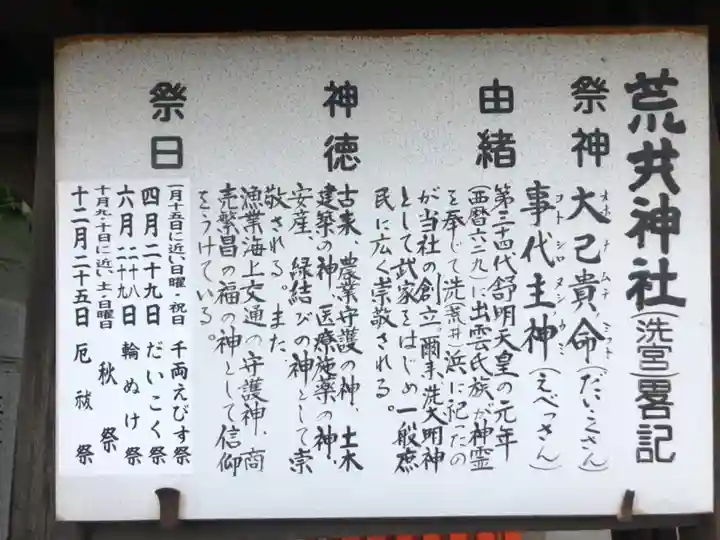 荒井神社(洗宮)畧記
祭神 大己貴命(だいこくさん)
オホナムチミコト
事代主神(えべっさん)
コトシロヌシノカミ
由緒 第三十四代舒明天皇の元年
(西暦六二九)に出雲氏族が神霊
を奉じて洗(荒井)浜に祀ったの
が当社の創立。爾来、洗大明神
として武家をはじめ一般庶
民に広く崇敬される。
神徳 古来、農業守護の神、土木
建築の神、医療施薬の神、
安産、縁結びの神として崇
敬される。また、
漁業海上交通の守護神、商
売繁昌の福の神として信仰
をうけている。
祭日 一月十五日に近い日曜・祝日 千両えびす祭
四月二十九日 だいこく祭
六月二十八二十九日 輪ぬけ祭
十月九・十日に近い土・日曜日 秋祭
十二月二十五日 厄祓祭